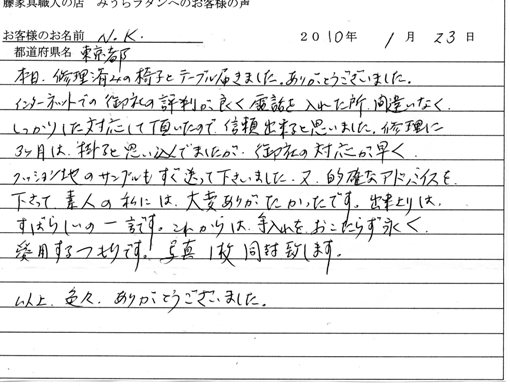 藤家具職人の店　みうらラタンへのお客様の声
お客様のお名前 N.K. 2010年 1月 23日
都道府県名 東京都
本日、修理済みの椅子とテーブル届きました。ありがとうございました。
インターネットでの御社の評判が良く電話を入れた所、間違いなく、
しっかりした対応して頂いたので信頼出来ると思いました。修理に
3ヶ月は、掛ると思い込んでましたが、御社の対応が早く、
クッション地のサンプルもすぐ送って下さいました。又、的確なアドバイスを、
下さって素人の私には、大変ありがたかったです。出来上りは、
すばらしいの一言です。これからは、手入れを、おこたらず永く、
愛用するつもりです。写真1枚同封致します。
以上、色々、ありがとうございました。